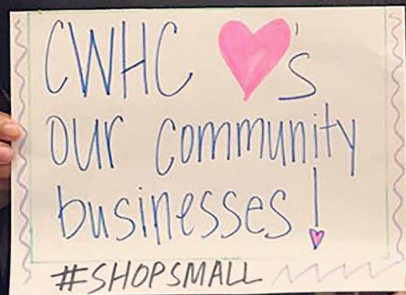 CWHC ♥'s
our community
businesses!
#SHOPSMALL